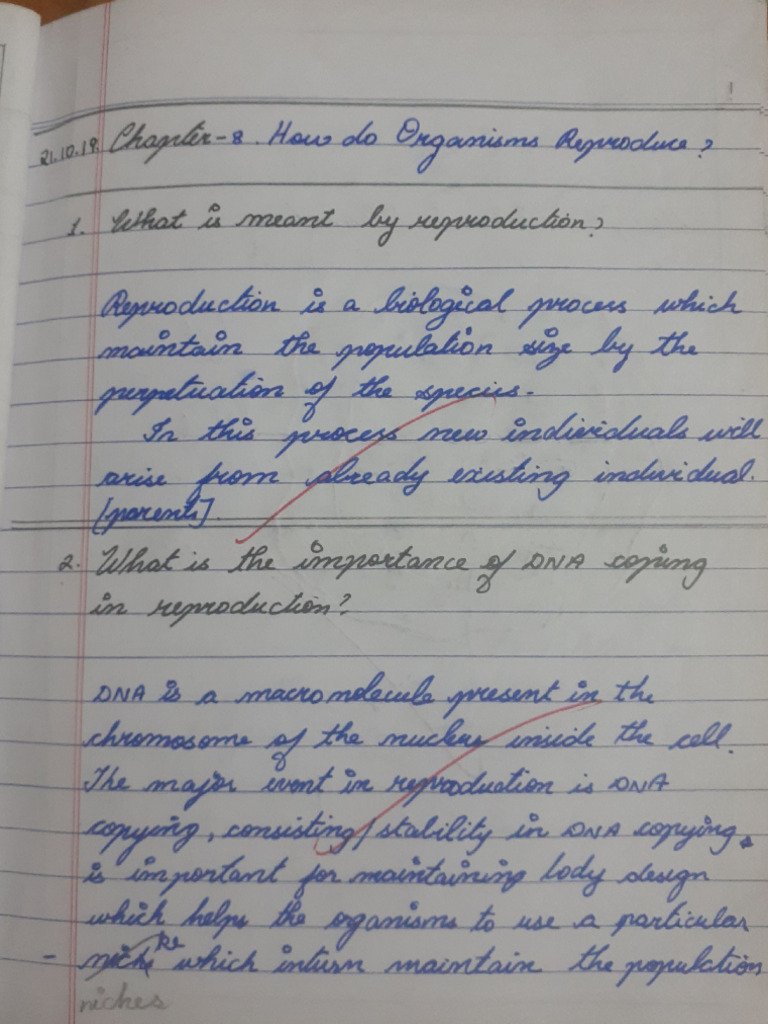 21.10.19. Chapter-8. How do Organisms Reproduce?
1. What is meant by reproduction?
Reproduction is a biological process which
maintain the population size by the
perpetuation of the species.
In this process new individuals will
arise from already existing individual.
[parents].
2. What is the importance of DNA copying
in reproduction?
DNA is a macromolecule present in the
chromosome of the nucleus inside the cell.
The major event in reproduction is DNA
copying, consisting/stability in DNA copying.
is important for maintaining body design
which helps the organisms to use a particular
which inturn maintain the population
niches